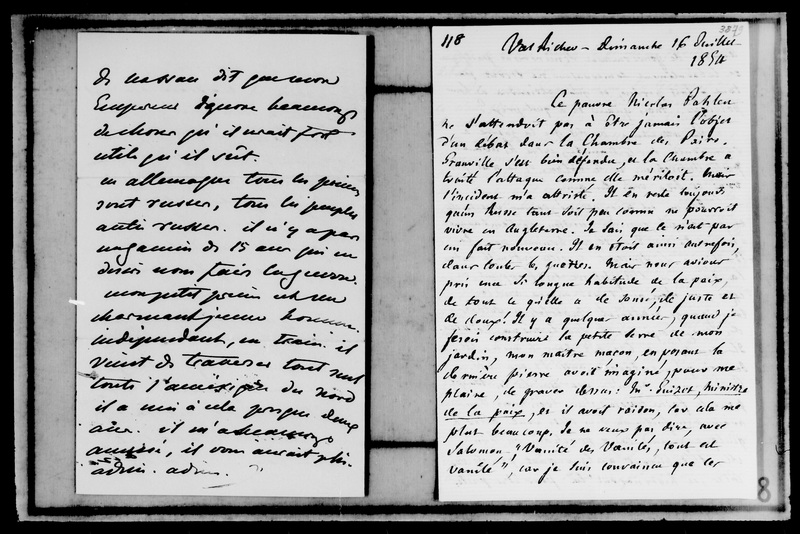 de nassau dit que mon
Empereur ignore beaucoup
de choses qu'il serait fort
utile qu'il sût.
en allemagne tous les princes
sont russes, tous les peuples
anti russes. il n'y a pas
un gamin de 15 ans qui ne
désire nous faire la guerre.
mon petit prince est un
charmant jeune homme.
indépendant, en train. il
vient de traverser tout seul
toute l'amérique du nord
il a mis à cela presque deux
ans. il m'a beaucoup
amusé, il vous aurait plu.
adieu. adieu.
3871
118
Val Richer - Dimanche 16 Juillet
1854
Ce pauvre Nicolas Pahlen
ne s'attendoit pas à être jamais l'objet
d'un débat dans la Chambre des Pairs.
Granville s'est bien défendu, et la Chambre a
traité l'attaque comme elle méritoit. Mais
l'incident m'a attristé. Il en reste toujours
qu'un Russe tant soit peu connu ne pourroit
vivre en Angleterre. Je sais que ce n'est pas
un fait nouveau. Il en étoit ainsi autrefois,
dans toutes les guerres. Mais nous avions
pris une si longue habitude de la paix,
de tout ce qu'elle a de sensé, de juste et
de doux! Il y a quelques années, quand je
fesois construire la petite serre de mon
jardin, mon maître maçon, en posant la
dernière pierre avoit imaginé, pour me
plaire, de graver dessus: Mr Guizot, ministre
de la paix, et il avoit raison, car cela me
plut beaucoup. Je ne veux pas dire, avec
Salomon "Vanité des Vanités, tout est
vanité", car je suis convaincu que les
8